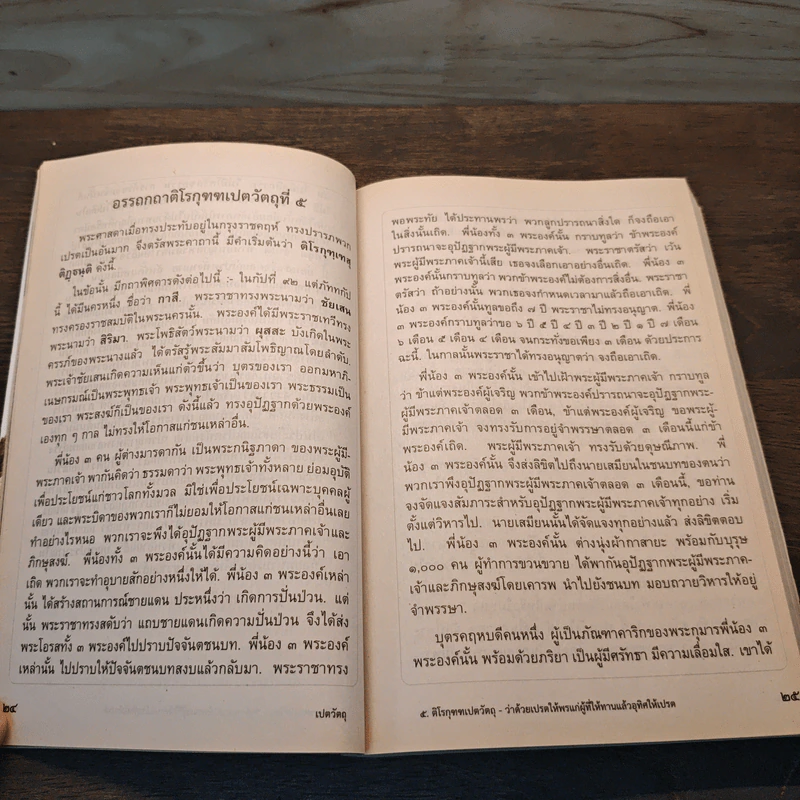 อรรถกถาติโรกุฑฑเปตวัตถุที่ ๕
พระศาสดาเมื่อทรงประทับอยู่ในกรุงราชคฤห์ ทรงปรารภพวก
เปรตเป็นอันมาก จึงตรัสพระคาถานี้ มีคำเริ่มต้นว่า ติโรกุฑฺเฑสุ
ติฏฺฐนฺติ ดังนี้
ในข้อนั้น มีกถาพิศดารดังต่อไปนี้ :- ในกัปที่ ๙๒ แต่ภัททกัป
นี้ ได้มีนครหนึ่ง ชื่อว่า กาสี. พระราชาทรงพระนามว่า ชัยเสน
ทรงครองราชสมบัติในพระนครนั้น. พระองค์ได้มีพระราชเทวีทรง
พระนามว่า สิริมา. พระโพธิสัตว์พระนามว่า ผุสสะ บังเกิดในพระ
ครรภ์ของพระนางแล้ว ได้ตรัสรู้พระสัมมาสัมโพธิญาณโดยลำดับ.
พระเจ้าชัยเสนเกิดความเห็นแก่ตัวขึ้นว่า บุตรของเรา ออกมหาภิ-
เนษกรมณ์เป็นพระพุทธเจ้า พระพุทธเจ้าเป็นของเรา พระธรรมเป็น
ของเรา พระสงฆ์ก็เป็นของเรา ดังนี้แล้ว ทรงอุปัฏฐากด้วยพระองค์
เองทุก ๆ กาล ไม่ทรงให้โอกาสแก่ชนเหล่าอื่น.
พี่น้อง ๓ คน ผู้ต่างมารดากัน เป็นพระกนิฐภาดา ของพระผู้มี-
พระภาคเจ้า พากันคิดว่า ธรรมดาว่า พระพุทธเจ้าทั้งหลาย ย่อมอุบัติ
เพื่อประโยชน์แก่ชาวโลกทั้งมวล มิใช่เพื่อประโยชน์เฉพาะบุคคลผู้
เดียว และพระบิดาของพวกเราก็ไม่ยอมให้โอกาสแก่ชนเหล่าอื่นเลย
ทำอย่างไรหนอ พวกเราจะพึงได้อุปัฏฐากพระผู้มีพระภาคเจ้าและ
ภิกษุสงฆ์. พี่น้องทั้ง ๓ พระองค์นั้นได้มีความคิดอย่างนี้ว่า เอา
เถิด พวกเราจะทำอุบายสักอย่างหนึ่งให้ได้. พี่น้อง ๓ พระองค์เหล่า
นั้น ได้สร้างสถานการณ์ชายแดน ประหนึ่งว่า เกิดการปั่นป่วน. แต่
นั้น พระราชาทรงสดับว่า แถบชายแดนเกิดความปั่นป่วน จึงได้ส่ง
พระโอรสทั้ง ๓ พระองค์ไปปราบปัจจันตชนบท. พี่น้อง ๓ พระองค์
เหล่านั้น ไปปราบให้ปัจจันตชนบทสงบแล้วกลับมา. พระราชาทรง
๒๔
เปตวัตถุ
พอพระทัย ได้ประทานพรว่า พวกลูกปรารถนาสิ่งใด ก็จงถือเอา
ในสิ่งนั้นเถิด. พี่น้องทั้ง ๓ พระองค์นั้น กราบทูลว่า ข้าพระองค์
ปรารถนาจะอุปัฏฐากพระผู้มีพระภาคเจ้า. พระราชาตรัสว่า เว้น
พระผู้มีพระภาคเจ้านี้เสีย เธอจงเลือกเอาอย่างอื่นเถิด. พี่น้อง ๓
พระองค์นั้นกราบทูลว่า พวกข้าพระองค์ไม่ต้องการสิ่งอื่น. พระราชา
ตรัสว่า ถ้าอย่างนั้น พวกเธอจงกำหนดเวลามาแล้วถือเอาเถิด. พี่
น้อง ๓ พระองค์นั้นทูลขอถึง ๗ ปี พระราชาไม่ทรงอนุญาต. พี่น้อง
๓ พระองค์กราบทูลว่าขอ ๖ ปี ๕ ปี ๔ ปี ๓ ปี ๒ ปี ๑ ปี ๗ เดือน
๖ เดือน ๕ เดือน ๔ เดือน จนกระทั่งขอเพียง ๓ เดือน ด้วยประการ
ฉะนี้. ในกาลนั้นพระราชาได้ทรงอนุญาตว่า จงถือเอาเถิด.
พี่น้อง ๓ พระองค์นั้น เข้าไปเฝ้าพระผู้มีพระภาคเจ้า กราบทูล
ว่า ข้าแต่พระองค์ผู้เจริญ พวกข้าพระองค์ปรารถนาจะอุปัฏฐากพระ-
ผู้มีพระภาคเจ้าตลอด ๓ เดือน, ข้าแต่พระองค์ผู้เจริญ ขอพระผู้-
มีพระภาคเจ้า จงทรงรับการอยู่จำพรรษาตลอด ๓ เดือนนี้แก่ข้า
พระองค์เถิด. พระผู้มีพระภาคเจ้า ทรงรับด้วยดุษณีภาพ. พี่
น้อง ๓ พระองค์นั้น จึงส่งลิขิตไปถึงนายเสมียนในชนบทของตนว่า
พวกเราพึงอุปัฏฐากพระผู้มีพระภาคเจ้าตลอด ๓ เดือนนี้, ขอท่าน
จงจัดแจงสัมภาระสำหรับอุปัฏฐากพระผู้มีพระภาคเจ้าทุกอย่าง เริ่ม
ตั้งแต่วิหารไป. นายเสมียนนั้นได้จัดแจงทุกอย่างแล้ว ส่งลิขิตตอบ
ไป. พี่น้อง ๓ พระองค์นั้น ต่างนุ่งผ้ากาสายะ พร้อมกับบุรุษ
๑,๐๐๐ คน ผู้ทำการขวนขวาย ได้พากันอุปัฏฐากพระผู้มีพระภาค-
เจ้าและภิกษุสงฆ์โดยเคารพ นำไปยังชนบท มอบถวายวิหารให้อยู่
จำพรรษา.
บุตรคฤหบดีคนหนึ่ง ผู้เป็นภัณฑาคาริกของพระกุมารพี่น้อง ๓
พระองค์นั้น พร้อมด้วยภริยา เป็นผู้มีศรัทธา มีความเลื่อมใส. เขาได้
๕. ติโรกุฑฑเปตวัตถุ - ว่าด้วยเปรตให้พรแก่ผู้ที่ให้ทานแล้วอุทิศให้เปรต
๒๕